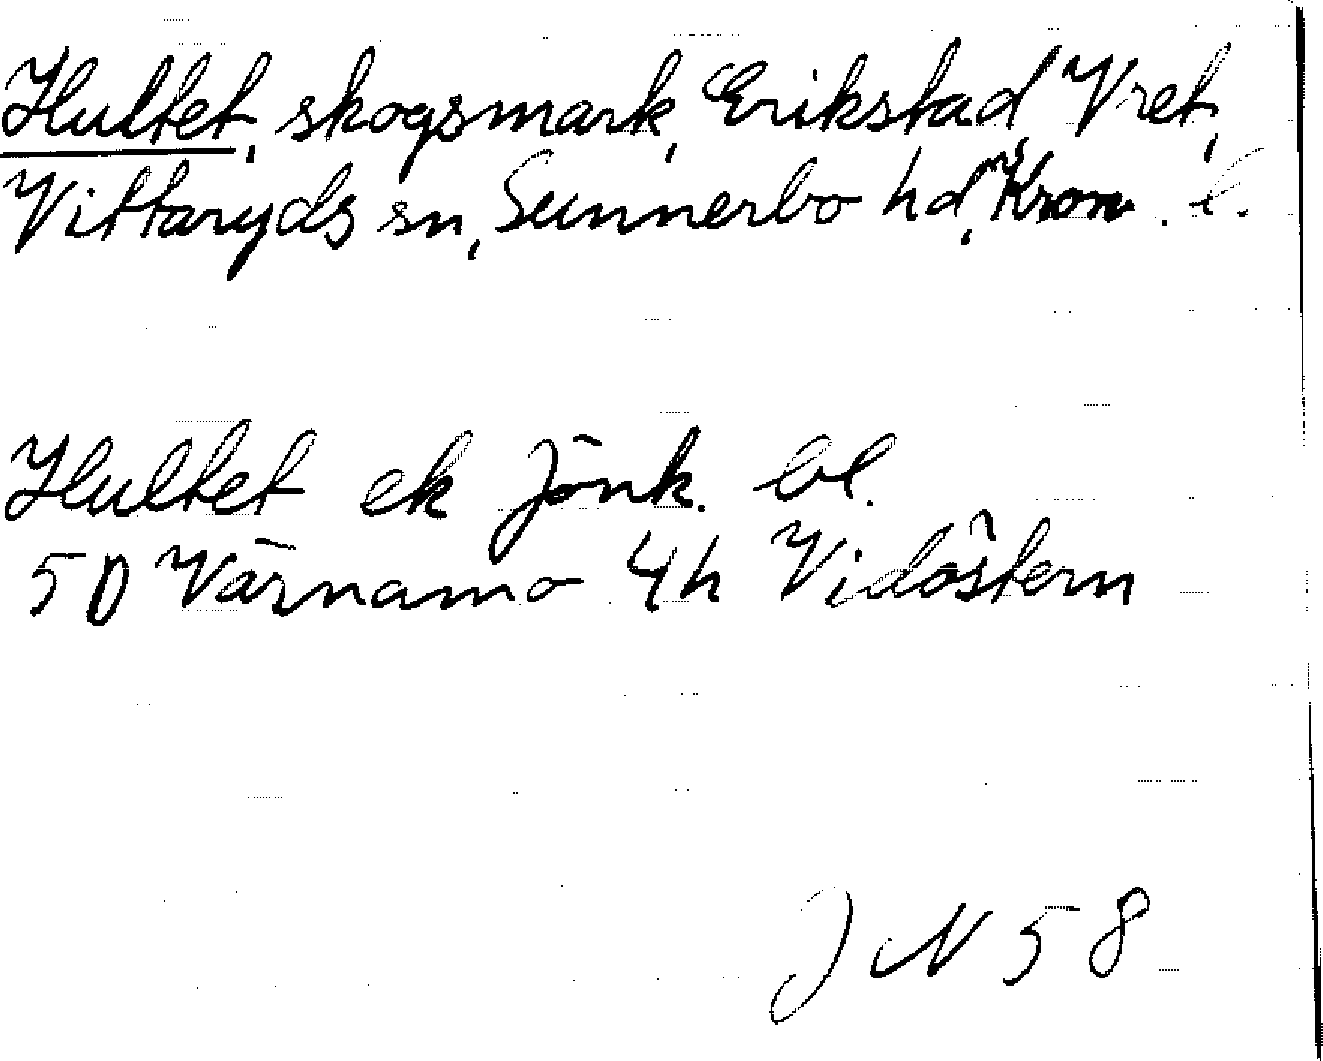 Hultet, skogsmark, Erikstad, Vret,
Vittaryds sn, Sunnerbo hd, Kron. l.
Hultet ek Jönk. bl.
5D Värnamo 4h Vidöstern
J N 58